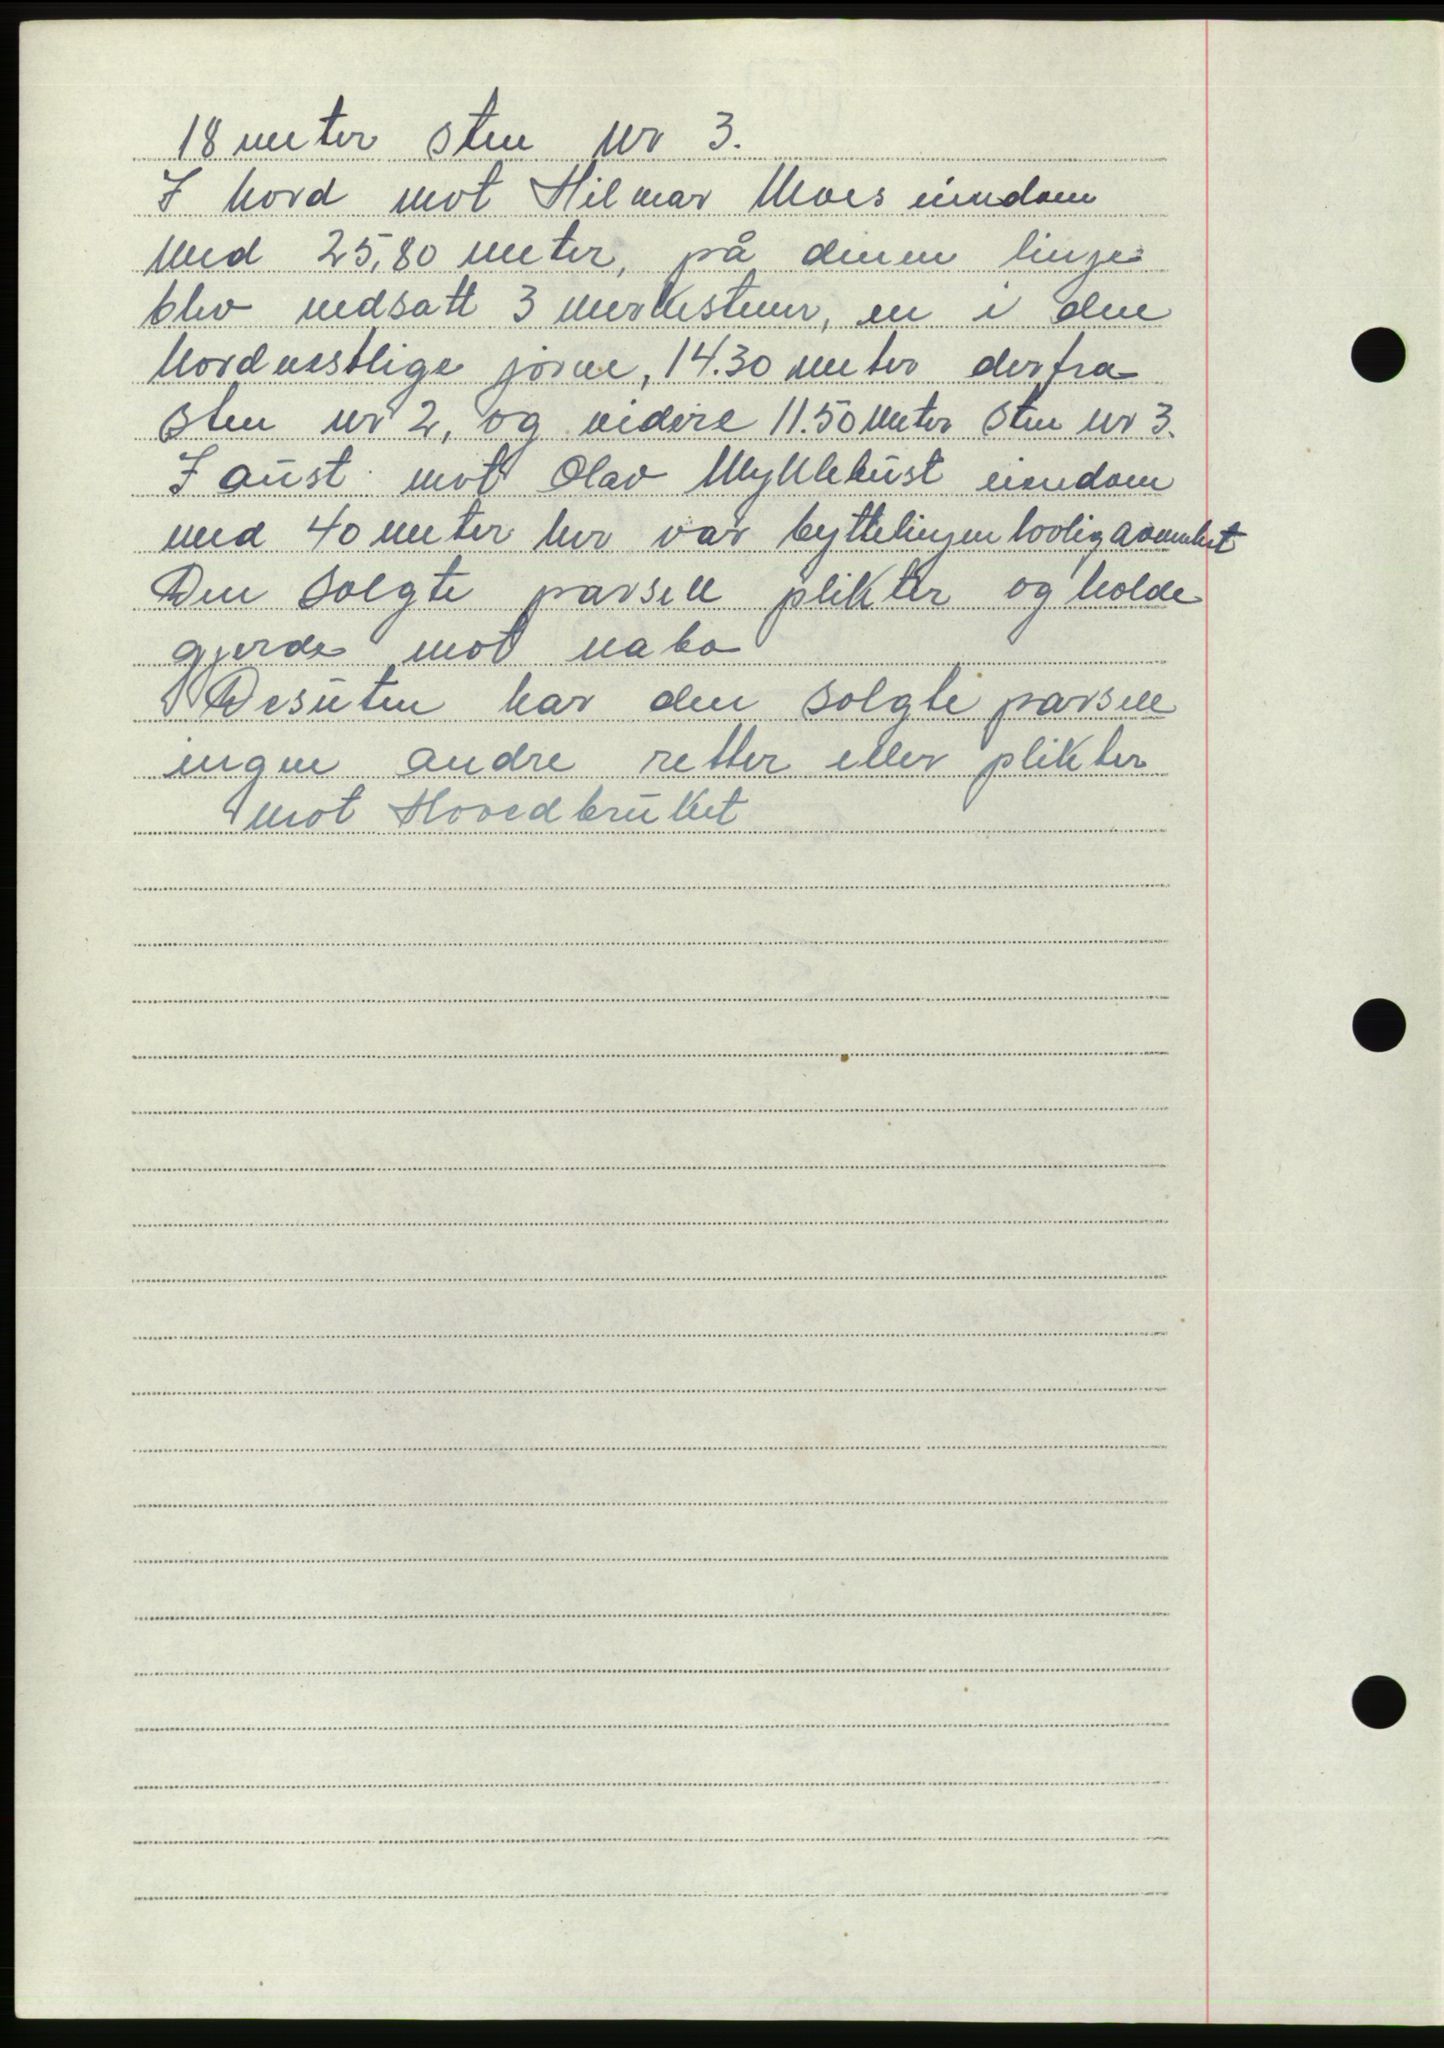 18 meter sten nr 3.
I Nord mot Hilmar Moes eiendom
med 25,80 meter, på denne linje
blev nedsatt 3 merkestener, en i den
Nordvestlige jørne, 14.30 meter derfra
sten nr 2, og videre 11.50 meter sten nr 3.
I aust mot Olav Myklebust eiendom
med 40 meter her var byttelinjen lovlig avmerket
Den solgte parsell plikter og holde
gjerde mot nabo
Desuten har den solgte parsell
ingen andre retter eller plikter
mot Hovedbruket